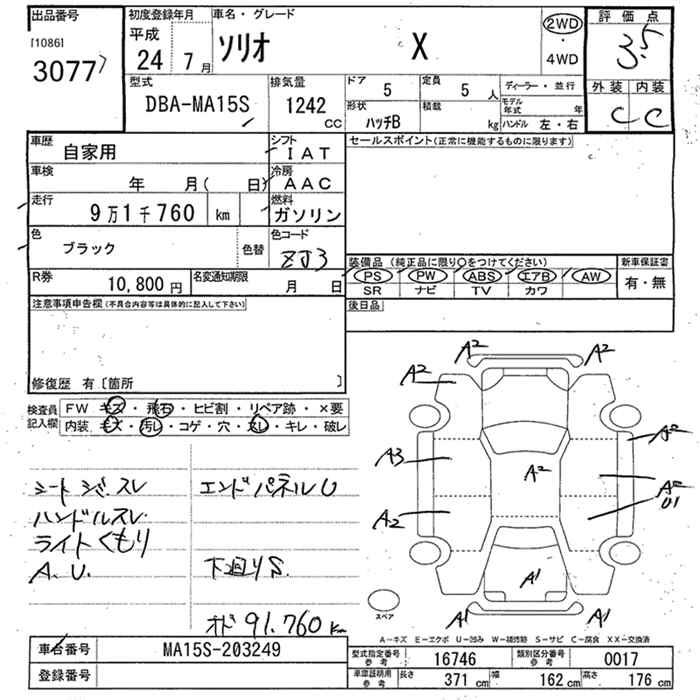 出品番号 初度登録年月 車名・グレード 評価点
[1086] 平成 ソリオ X 2WD 3.5
3077 24 7月 ・ 4WD
型式 排気量 ドア 5 定員 5人 ディーラー・並行 外装 内装
DBA-MA15S 1242 CC 形状 ハッチB 積載 kg モデル年式 年 C C
ハンドル 左・右
車歴 自家用 シフト IAT セールスポイント(正常に機能するものに限ります)
車検 年 月( 日) 冷房 AAC
走行 9万1千760 km 燃料 ガソリン
色 ブラック 色替 色コード ZJ3
装備品 (純正品に限り○をつけてください) 新車保証書
R券 10,800円 名変通知期限 月 日 PS PW ABS エアB AW 有・無
SR ナビ TV カワ
注意事項申告欄(不具合内容等は具体的に記入して下さい) 後日品
修復歴 有〔箇所 〕
検査員記入欄 FW キズ・飛石・ヒビ割・リペア跡・×要
内装 キズ・汚レ・コゲ・穴・スレ・キレ・破レ
A2 A2
A2
A2
A3
A2
A2
U1
A2
A1
A1 A1
スペア
シートシミ.スレ エンドパネルU
ハンドルスレ.
ライトくもり
A.U. 下廻りS.
オド 91.760 km
A-キズ E-エクボ U-凹み W-補修跡 S-サビ C-腐食 XX-交換済
車台番号 MA15S-203249 型式指定番号 参考 16746 類別区分番号 参考 0017
登録番号 車庫証明用 参考 長さ 371 cm 幅 162 cm 高さ 176 cm